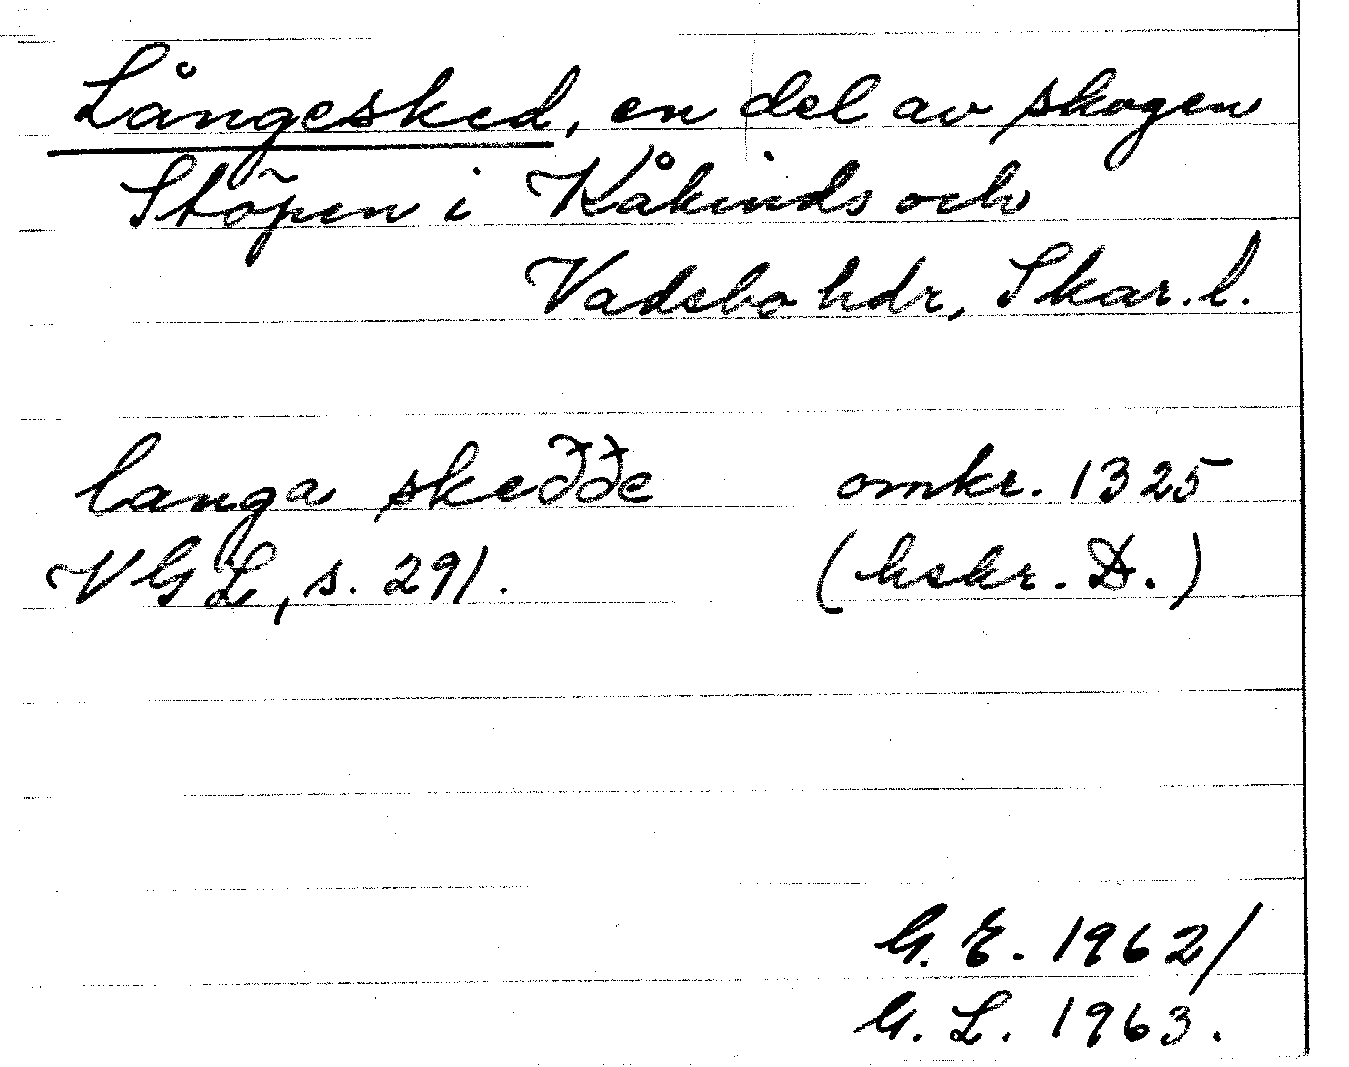 Långesked, en del av skogen
Stöpen i Kåkinds och
Vadsbo hdr, Skar. l.
langa skeððe omkr. 1325
VGL, s. 291. (hskr. D.)
G. E. 1962/
G. L. 1963.